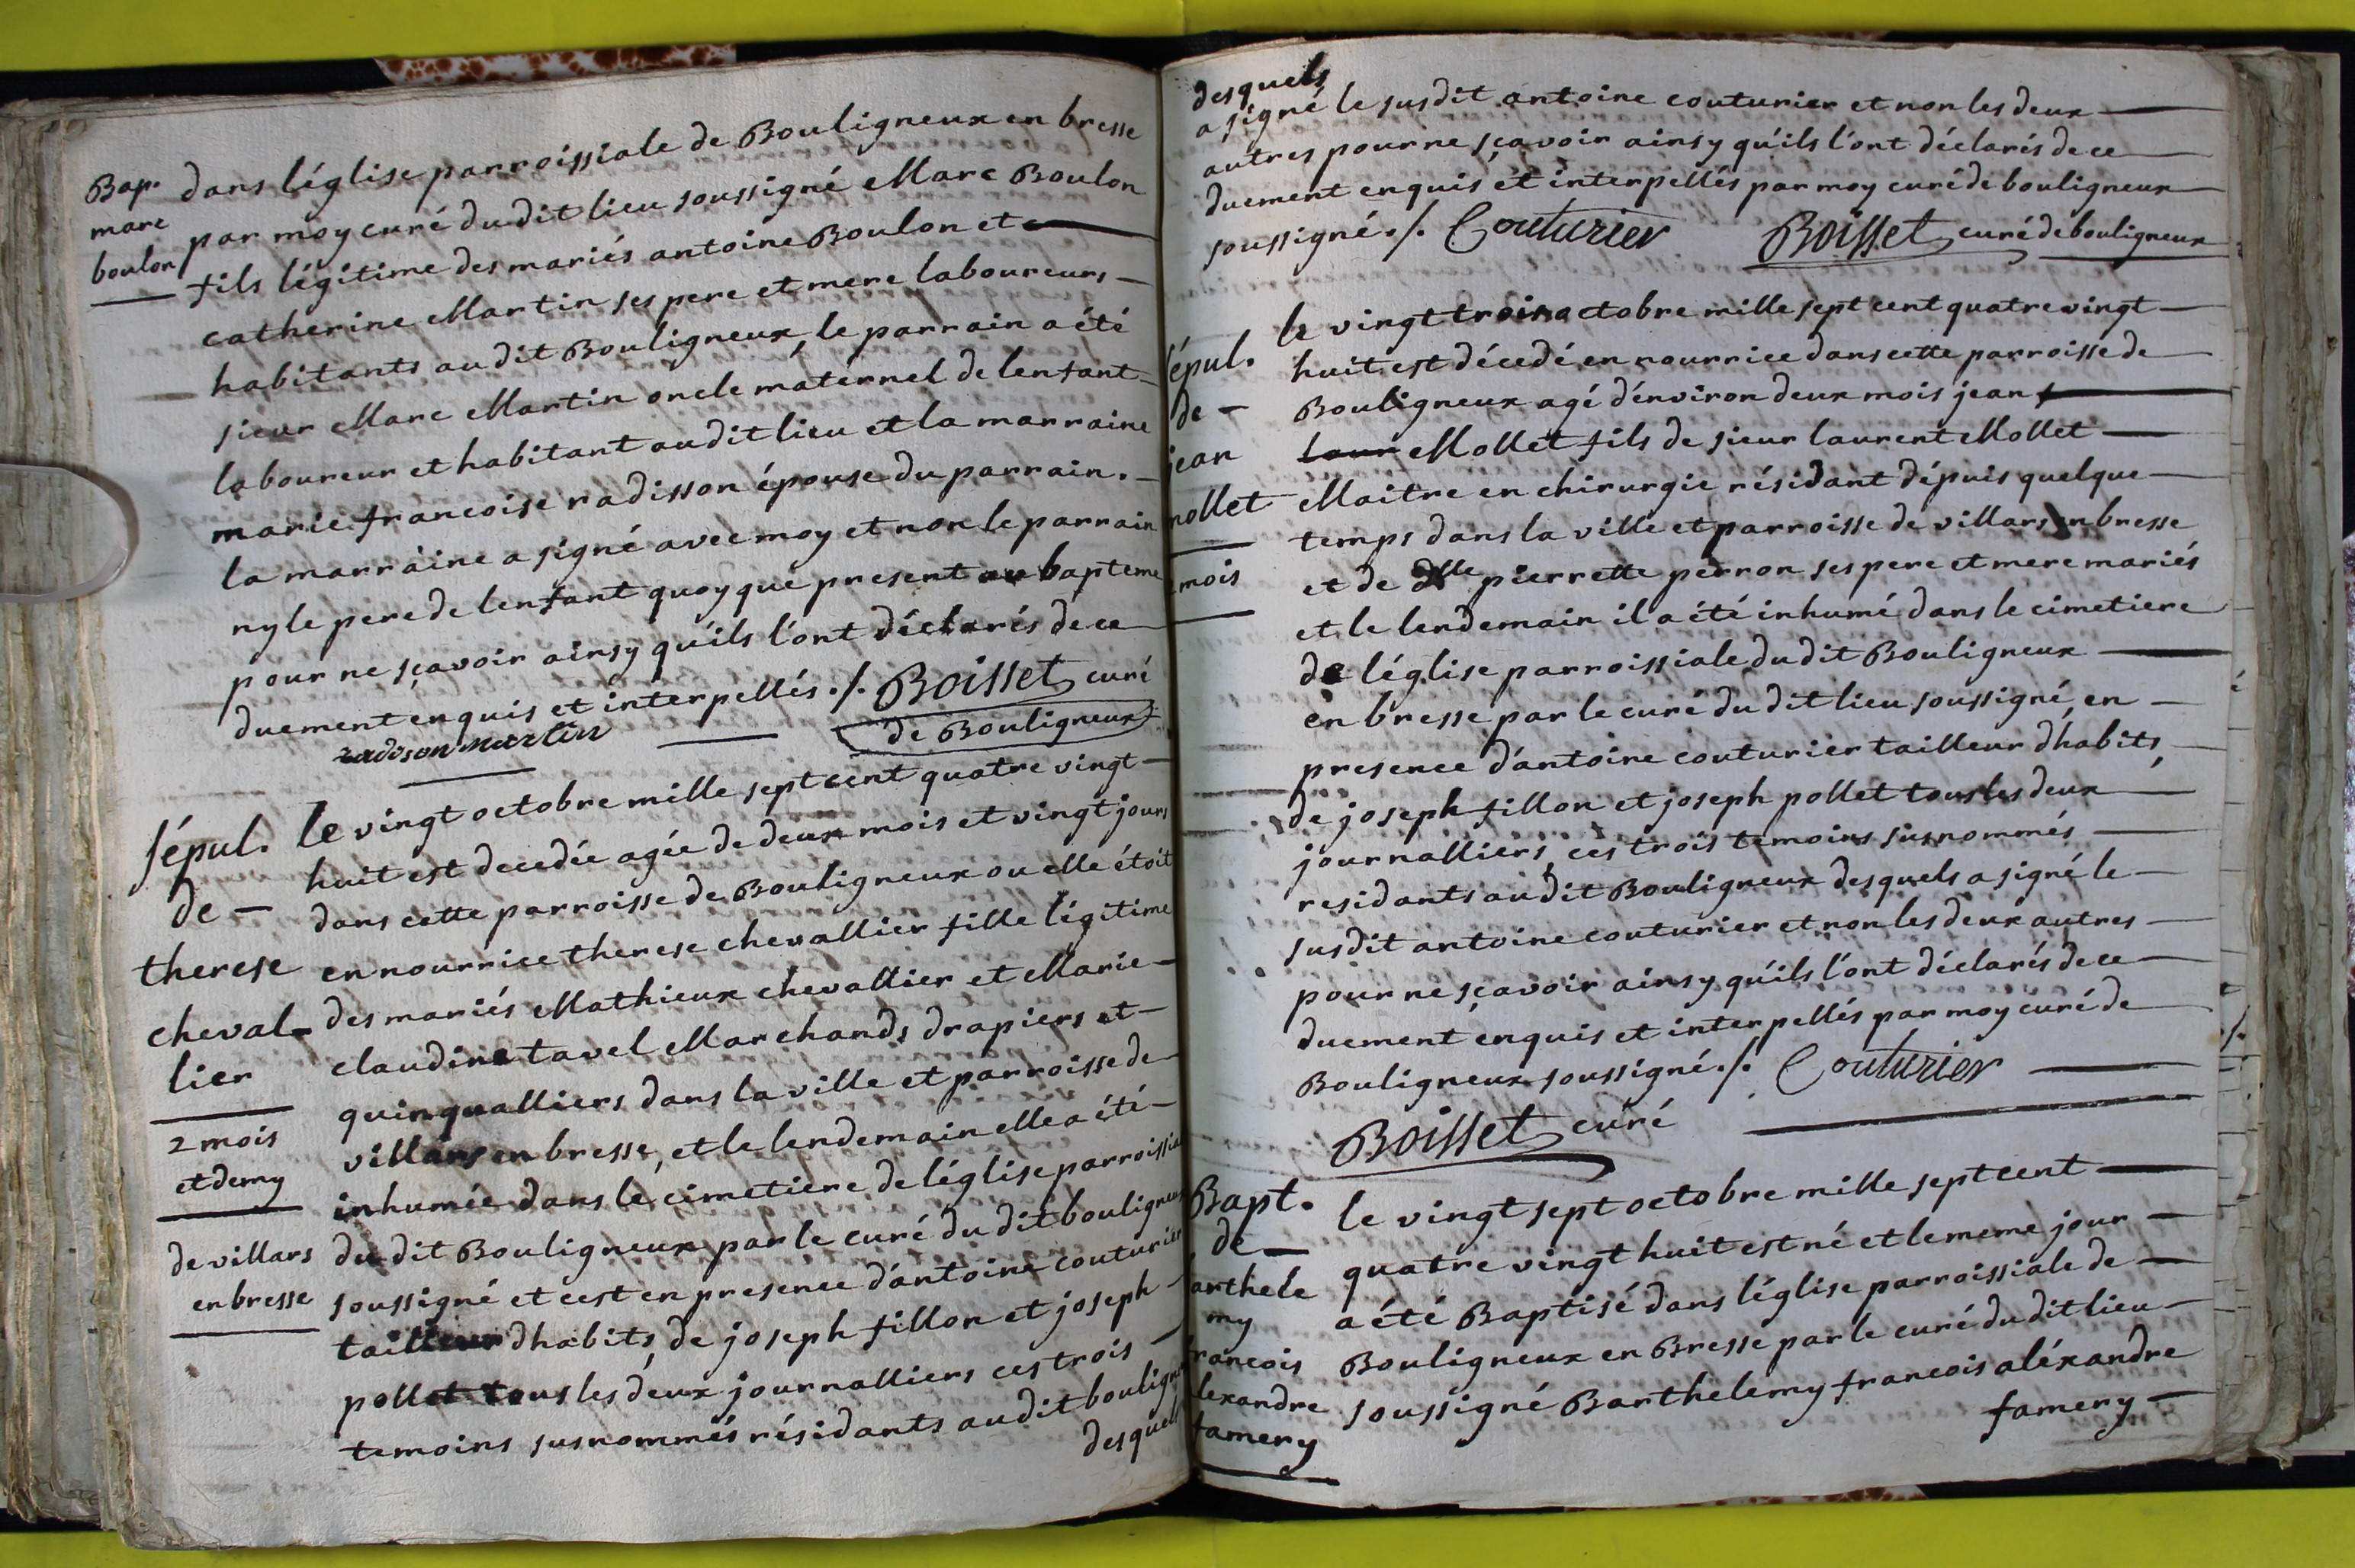 Bap.
marc
boulon
dans léglise parroissiale de Bouligneux en bresse
par moy curé du dit lieu soussigné Marc Boulon
fils légitime des mariés antoine Boulon et
catherine Martin ses pere et mere laboureurs
habitants au dit Bouligneux, le parrain a été
sieur Marc Martin oncle maternel de lenfant
laboureur et habitant au dit lieu et la marraine
marie francoise radisson épouse du parrain.
la marraine a signé avec moy et non le parrain
ny le pere de lenfant quoyque present au bapteme
pour ne sçavoir ainsy qu'ils l'ont déclarés de ce
duement enquis et interpellés ./. Boisset curé
de Bouligneux
radison martin
sépul.
de
therese
cheval-
lier
2 mois
et demy
de villars
en bresse
le vingt octobre mille sept cent quatre vingt
huit est decedée agée de deux mois et vingt jours
dans cette parroisse de Bouligneux ou elle étoit
en nourrice therese chevallier fille légitime
des mariés Mathieux chevallier et Marie
claudine tavel Marchands drapiers et
quinqualliers dans la ville et parroisse de
villars en bresse, et le lendemain elle a été
inhumée dans le cimetiere de léglise parroissia
du dit Bouligneux par le curé du dit bouligneux
soussigné et cest en presence d'antoine couturier
tailleur dhabits, de joseph fillon et joseph
pollet tous les deux journalliers ces trois
temoins susnommés résidants au dit bouligneux
desquels
desquels
a signé le susdit antoine couturier et non les deux
autres pour ne sçavoir ainsy qu'ils l'ont déclarés de ce
duement enquis et interpellés par moy curé de bouligneux
soussigné ./. Couturier Boisset curé de bouligneux
sépul.
de
jean
mollet
2 mois
le vingt trois octobre mille sept cent quatre vingt
huit est décedé en nourrice dans cette parroisse de
Bouligneux agé d'environ deux mois jean
laur Mollet fils de sieur laurent Mollet
Maitre en chirurgie résidant dépuis quelque
temps dans la ville et parroisse de villars en bresse
et de dlle pierrette perron ses pere et mere mariés
et le lendemain il a été inhumé dans le cimetiere
de léglise parroissiale du dit Bouligneux
en bresse par le curé du dit lieu soussigné, en
presence d'antoine couturier tailleur dhabits,
de joseph fillon et joseph pollet tous les deux
journalliers, ces trois temoins susnommés
residants au dit Bouligneux desquels a signé le
susdit antoine couturier et non les deux autres
pour ne sçavoir ainsy qu'ils l'ont déclarés de ce
duement enquis et interpellés par moy curé de
Bouligneux soussigné ./. Couturier
Boisset curé
Bapt.
de
arthele
my
francois
lexandre
famery
le vingt sept octobre mille sept cent
quatre vingt huit est né et le meme jour
a été Baptisé dans l'église parroissiale de
Bouligneux en Bresse par le curé du dit lieu
soussigné Barthelemy francois aléxandre
famery